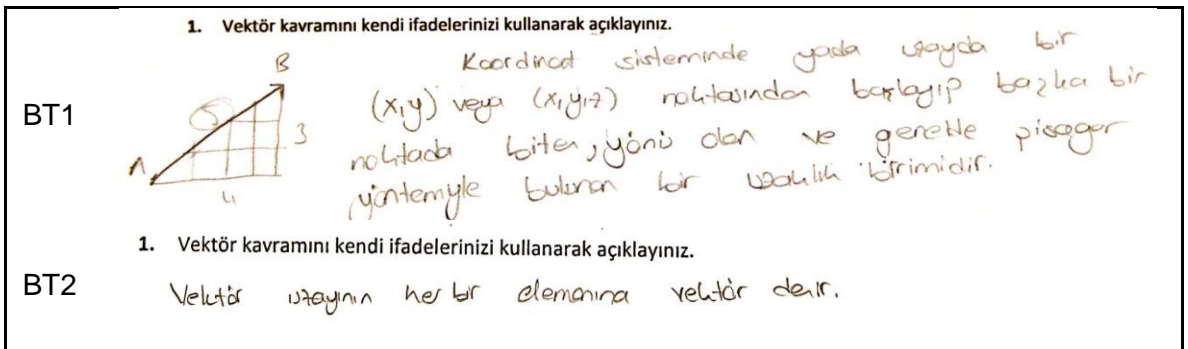 1. Vektör kavramını kendi ifadelerinizi kullanarak açıklayınız.
BT1
A
B
5
3
4
Koordinat sisteminde yada uzayda bir
(x,y) veya (x,y,z) noktasından başlayıp bazka bir
noktada biten, yönü olan ve genelde pisagor
yöntemyle bulunan bir uzaklık birimidir.
1. Vektör kavramını kendi ifadelerinizi kullanarak açıklayınız.
BT2
Vektör uzayının her bir elemanına vektör denir.